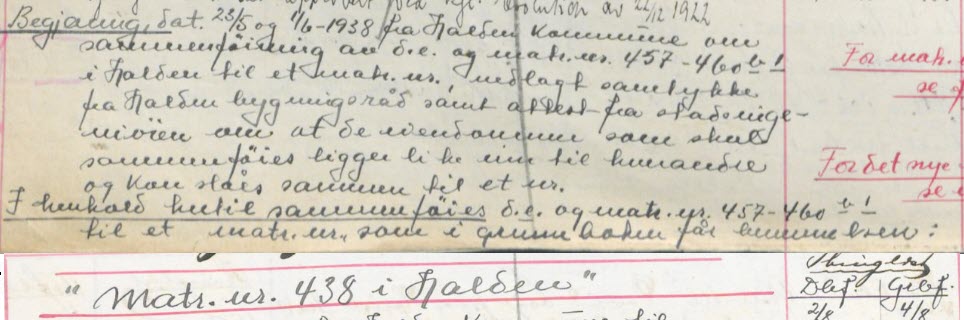 approbert ved kgl. resolution av 22/12 1922
Begjæring, dat. 23/5 og 1/6-1938 fra Halden Kommune om
sammenføining av d.e. og matr.nr. 457-460 b 1
i Halden til et matr.nr. vedlagt samtykke
fra Halden bygningsråd samt attest fra stadsinge-
niøren om at de eiendommer som skal
sammenføies ligger like inn til hinandre
og kan slåes sammen til et nr.
I henhold hertil sammenføies d.e. og matr.nr. 457-460 b 1
til et matr.nr., som i grunnboken får benevnelsen:
"Matr.nr. 438 i Halden"
For matr.
se
For det nye
se
Thinglæst
Dbf. Grbf.
2/8 4/8